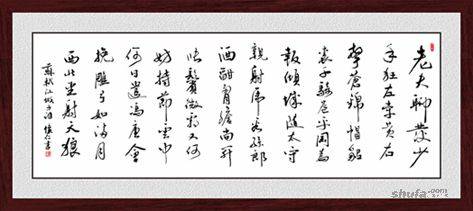 老夫聊發少
年狂左牽黄右
擎蒼錦帽貂
裘千騎卷平岡為
報傾城隨太守
親射虎看孫郎
酒酣胸膽尚开
張鬢微霜又何
妨持節雲中
何日遣馮唐會
挽雕弓如满月
西北望射天狼
蘇軾江城子詞
shufa.com